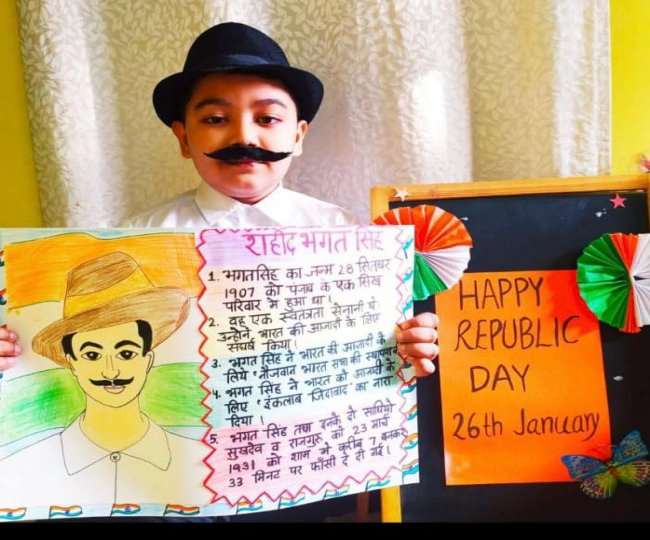 शहीद भगत सिंह
1. भगतसिंह का जन्म 28 सितंबर
1907 को पंजाब के एक सिख
परिवार में हुआ था।
2. वह एक स्वतंत्रता सेनानी थे
उन्होंने भारत की आजादी के लिए
संघर्ष किया।
3. भगत सिंह ने भारत की आजादी के
लिये नौजवान भारत सभा की स्थापना
4. भगत सिंह ने भारत को आजादी के
लिए 'इंकलाब जिंदाबाद' का नारा
दिया।
5. भगत सिंह तथा इनके दो साथियो
सुखदेव व राजगुरु को 23 मार्च
1931 को शाम में करीब 7 बजकर
33 मिनट पर फाँसी दे दी गई।
HAPPY
REPUBLIC
DAY
26th January